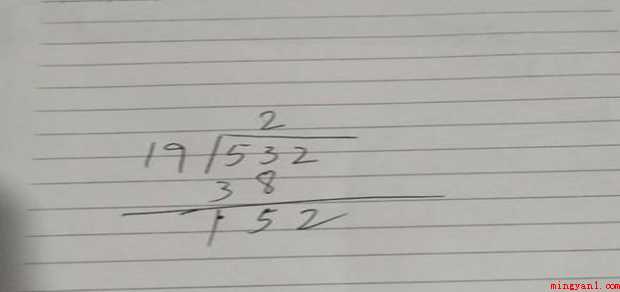 2
19 532
38
152
mingyanl.com